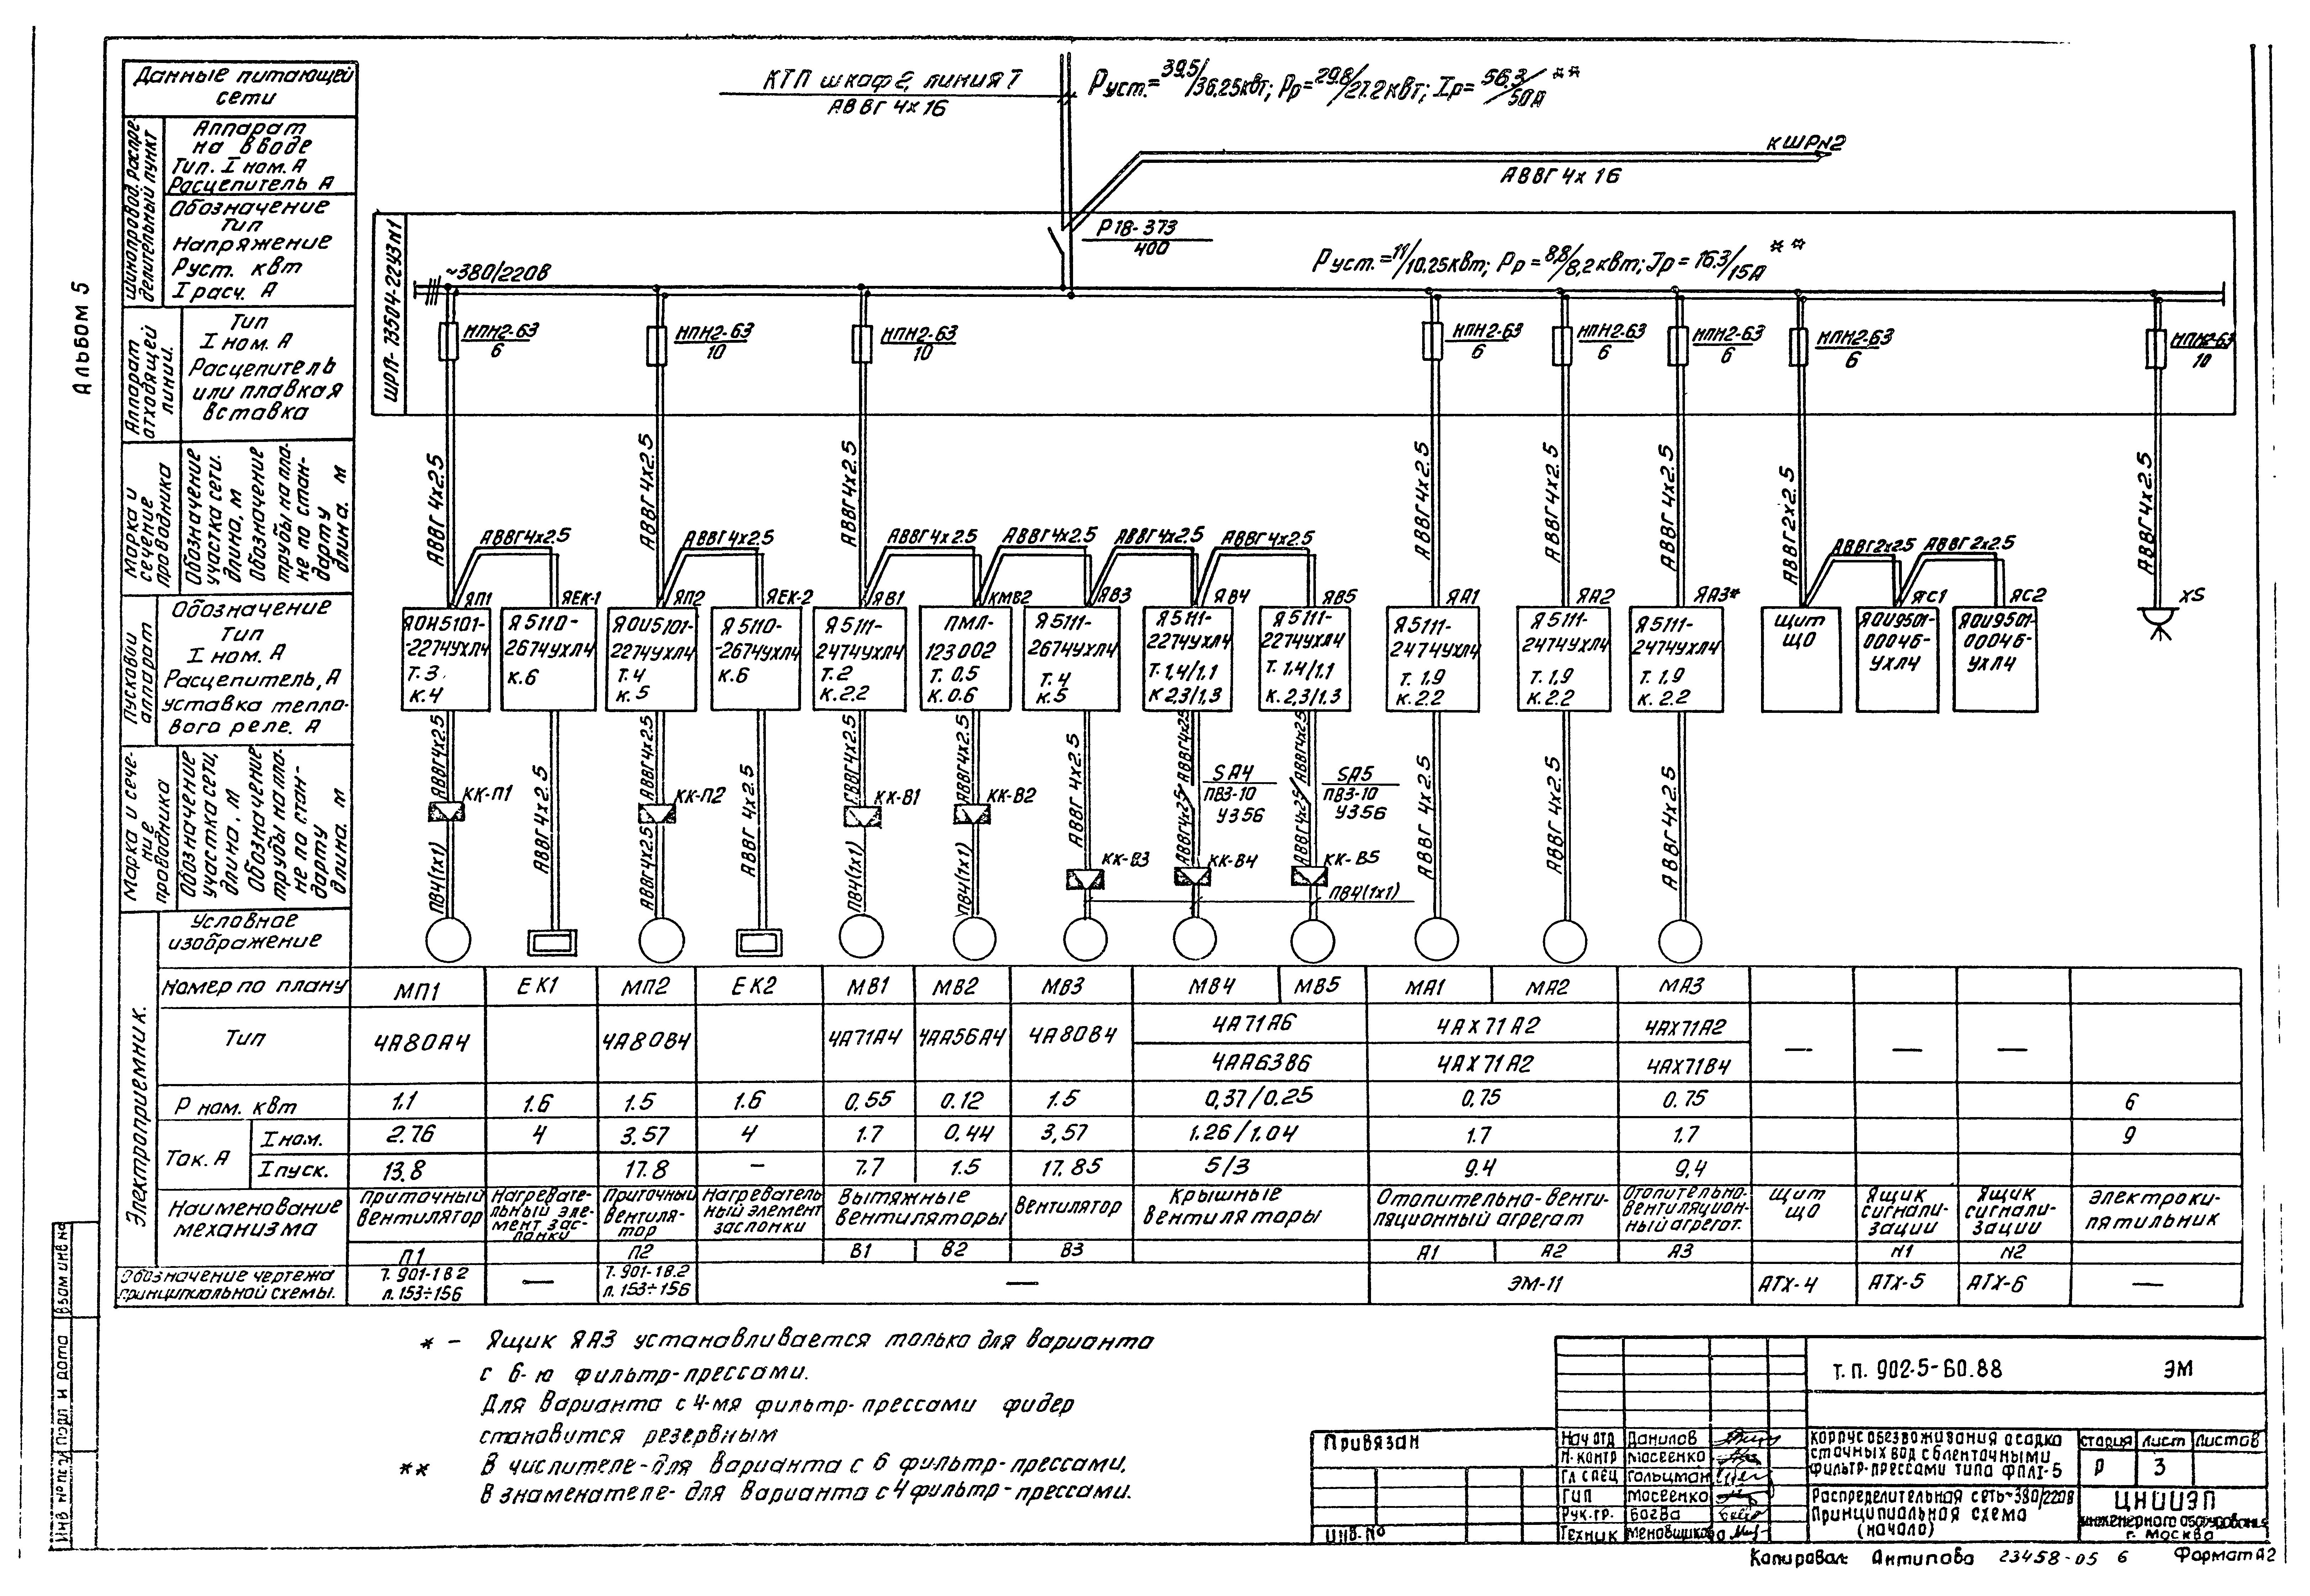 Альбом 5
Данные питающей
сети
Шинопровод. распре-
делительный пункт
Аппарат
на вводе
Тип. I ном. А
Расцепитель А
Обозначение
Тип
Напряжение
Руст. квт
I расч. А
Аппарат
отходящей
линии.
Тип
I ном. А
Расцепитель
или плавкая
вставка
Марка и
сечение
проводника
Обозначение
участка сети.
длина, м
Обозначение
трубы на пла-
не по стан-
дарту
длина. м
Пусковой
аппарат
Обозначение
Тип
I ном. А
Расцепитель, А
уставка тепло-
вого реле. А
Марка и сече-
ние
проводника
Обозначение
участка сети,
длина, м
Обозначение
трубы на пла-
не по стан-
дарту
длина. м
КТП шкаф 2, линия 7
АВВГ 4х16
Руст.=39.5/36.25квт; Рр=29.8/27.2квт; Iр=56.3/50А **
КШР№2
АВВГ 4х 16
ШРП-73504-22У3№1
Р18-373
400
Руст.=11/10.25квт; Рр=8,8/8,2квт; Iр=16.3/15А **
~380/220В
НПН2-63
6
НПН2-63
10
НПН2-63
10
НПН2-63
6
НПН2-63
6
НПН2-63
6
НПН2-63
6
НПН2-63
10
АВВГ 4х2.5
АВВГ 4х2.5
АВВГ 4х2.5
АВВГ 4х2.5
АВВГ 4х2.5
АВВГ 4х2.5
АВВГ 2х2.5
АВВГ 4х2.5
АВВГ 4х2.5
АВВГ 4х2.5
АВВГ 4х2.5
АВВГ 4х2.5
АВВГ 4х2.5
АВВГ 4х2.5
АВВГ 2х2.5
АВВГ 2х2.5
ЯП1
ЯОН5101-
-2274УХЛ4
Т. 3
к. 4
ЯЕК-1
Я 5110-
2674УХЛ4
к. 6
ЯП2
ЯОИ5101-
2274УХЛ4
Т. 4
к. 5
ЯЕК-2
Я 5110
-2674УХЛ4
к. 6
ЯВ1
Я 5111-
2474УХЛ4
Т. 2
к. 2.2
КМВ2
ПМЛ-
123002
Т. 0.5
к. 0.6
ЯВ3
Я 5111-
2674УХЛ4
Т. 4
к. 5
ЯВ4
Я 5111-
2274УХЛ4
Т. 1,4/1,1
к 2,3/1,3
ЯВ5
Я 5111-
2274УХЛ4
Т. 1.4/1,1
к. 2,3/1.3
ЯА1
Я5111-
2474УХЛ4
Т. 1.9
к. 2.2
ЯА2
Я 5111-
2474УХЛ4
Т. 1,9
к. 2.2
ЯА3*
Я 5111-
2474УХЛ4
Т. 1.9
к. 2.2
Щит
ЩО
ЯС1
ЯОИ9501-
0004Б-
УХЛ4
ЯС2
ЯОИ9501-
0004Б-
УХЛ4
XS
АВВГ4х2.5
КК-П1
ПВ4(1х1)
АВВГ4х2.5
АВВГ4х2.5
КК-П2
АВВГ4х2.5
АВВГ 4х2.5
АВВГ4х2.5
КК-В1
ПВ4(1х1)
АВВГ4х2.5
КК-В2
ПВ4(1х1)
АВВГ 4х2.5
КК-В3
АВВГ4х2.5
SA4
ПВ3-10
У356
АВВГ4х2.5
КК-В4
АВВГ4х2.5
SA5
ПВ3-10
У356
АВВГ4х2.5
КК-В5
ПВ4(1х1)
АВВГ 4х2.5
АВВГ 4х2.5
АВВГ 4х2.5
Электроприемник.
Условное
изображение
Номер по плану МП1 ЕК1 МП2 ЕК2 МВ1 МВ2 МВ3 МВ4 МВ5 МА1 МА2 МА3
Тип 4А80А4 4А80В4 4А71А4 4АА56А4 4А80В4 4А71А6 4АХ71А2 4АХ71А2 — — —
4АА63В6 4АХ71А2 4АХ71В4
Р ном. квт 1.1 1.6 1.5 1.6 0,55 0.12 1.5 0,37/0.25 0,75 0.75 6
Ток. А
I ном. 2.76 4 3.57 4 1.7 0,44 3,57 1.26/1.04 1.7 1.7 9
I пуск. 13.8 17.8 — 7.7 1.5 17.85 5/3 9.4 9,4
Наименование
механизма
Приточный
вентилятор
П1
Нагревате-
льный эле-
мент зас-
лонки
Приточный
вентиля-
тор
П2
Нагреватель
ный элемент
заслонки
Вытяжные
вентиляторы
В1 В2
Вентилятор
В3
Крышные
вентиляторы
Отопительно-венти-
ляционный агрегат
А1 А2
Отопительно-
вентиляцион-
ный агрегат.
А3
Щит
ЩО
Ящик
сигнали-
зации
№1
Ящик
сигнали-
зации
№2
Электроки-
пятильник
Обозначение чертежа
принципиальной схемы.
7. 901-1 В.2
л. 153÷156
—
7. 901-1В.2
л. 153÷156
—
ЭМ-11
АТХ-4
АТХ-5
АТХ-6
—
* - Ящик ЯА3 устанавливается только для варианта
с 6-ю фильтр-прессами.
Для варианта с 4-мя фильтр-прессами фидер
становится резервным
** В числителе-для варианта с 6 фильтр-прессами,
В знаменателе-для варианта с 4 фильтр-прессами.
Взам инв №
Подп и дата
Инв № подл
Привязан
Инв. №
Нач отд Данилов
Н. контр Мосеенко
Гл спец Гольцман
ГИП Мосеенко
Рук. гр. Боева
Техник Меновщикова
т. п. 902-5-60.88 ЭМ
Корпус обезвоживания осадка
сточных вод с 6 ленточными
фильтр-прессами типа ФПЛ1-5
стадия лист листов
Р 3
Распределительная сеть~380/220В
Принципиальная схема
(начало)
ЦНИИЭП
инженерного оборудования
г. Москва
Копировал: Антипова 23458-05 6 Формат А2